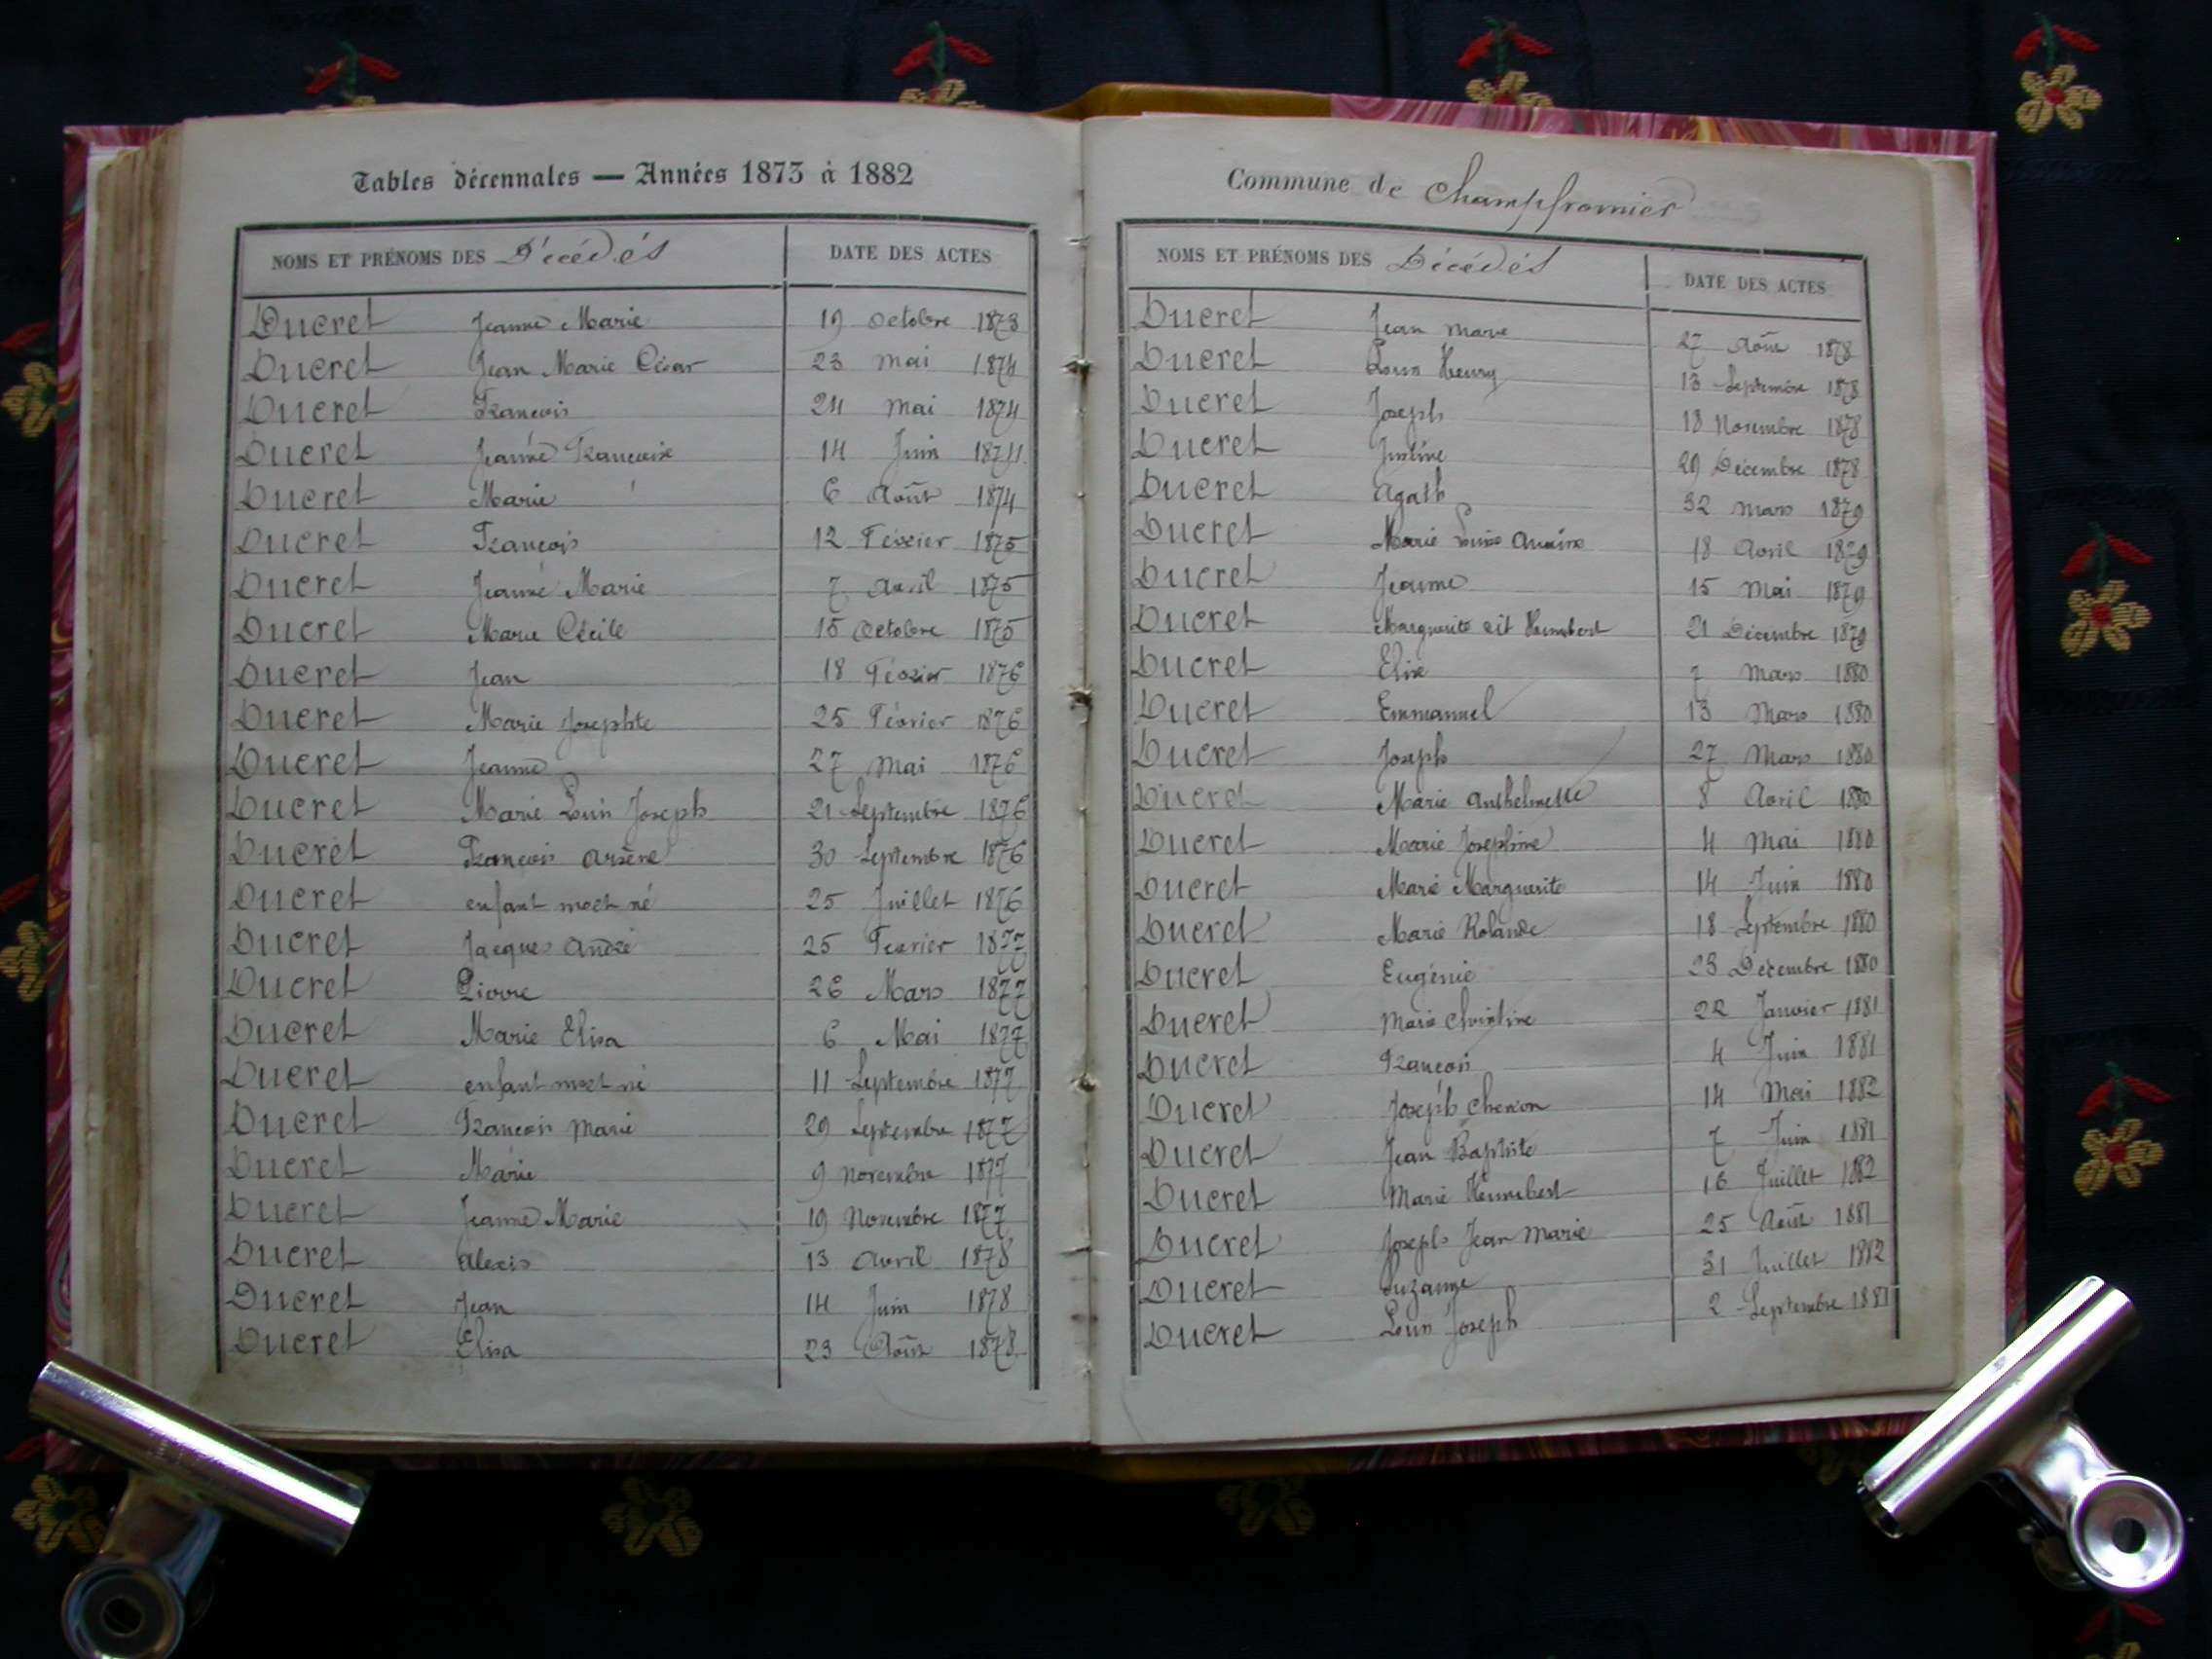 Tables décennales — Années 1873 à 1882
NOMS ET PRÉNOMS DES Décédés DATE DES ACTES
Ducret Jeanne Marie 19 Octobre 1873
Ducret Jean Marie César 23 Mai 1874
Ducret François 24 Mai 1874
Ducret Jeanne Françoise 14 Juin 1874
Ducret Marie 6 Août 1874
Ducret François 12 Février 1875
Ducret Jeanne Marie 7 Avril 1875
Ducret Marie Cécile 15 Octobre 1875
Ducret Jean 18 Février 1876
Ducret Marie Josephte 25 Février 1876
Ducret Jeanne 27 Mai 1876
Ducret Marie Louis Joseph 21 Septembre 1876
Ducret François Arsène 30 Septembre 1876
Ducret enfant mort né 25 Juillet 1876
Ducret Jacques André 25 Février 1877
Ducret Pierre 26 Mars 1877
Ducret Marie Elisa 6 Mai 1877
Ducret enfant mort né 11 Septembre 1877
Ducret François Marie 29 Septembre 1877
Ducret Marie 9 Novembre 1877
Ducret Jeanne Marie 19 Novembre 1877
Ducret Alexis 13 Avril 1878
Ducret Jean 14 Juin 1878
Ducret Elisa 23 Août 1878
Commune de Champfromier
NOMS ET PRÉNOMS DES Décédés DATE DES ACTES
Ducret Jean Marie 27 Août 1878
Ducret Louis Henry 13 Septembre 1878
Ducret Joseph 18 Novembre 1878
Ducret Justine 29 Décembre 1878
Ducret Agath 32 Mars 1879
Ducret Marie Louise 18 Avril 1879
Ducret Jeanne 15 Mai 1879
Ducret Marguerite dit Humbert 21 Décembre 1879
Ducret Elise 7 Mars 1880
Ducret Emmanuel 13 Mars 1880
Ducret Joseph 27 Mars 1880
Ducret Marie Anthelmette 8 Avril 1880
Ducret Marie Joséphine 4 Mai 1880
Ducret Marie Marguerite 14 Juin 1880
Ducret Marie Rolande 18 Septembre 1880
Ducret Eugénie 23 Décembre 1880
Ducret Marie Christine 22 Janvier 1881
Ducret François 4 Juin 1881
Ducret Joseph 14 Mai 1882
Ducret Jean Baptiste 7 Juin 1881
Ducret Marie 16 Juillet 1882
Ducret Joseph Jean Marie 25 Août 1881
Ducret Suzanne 31 Juillet 1882
Ducret Louis Joseph 2 Septembre 1881